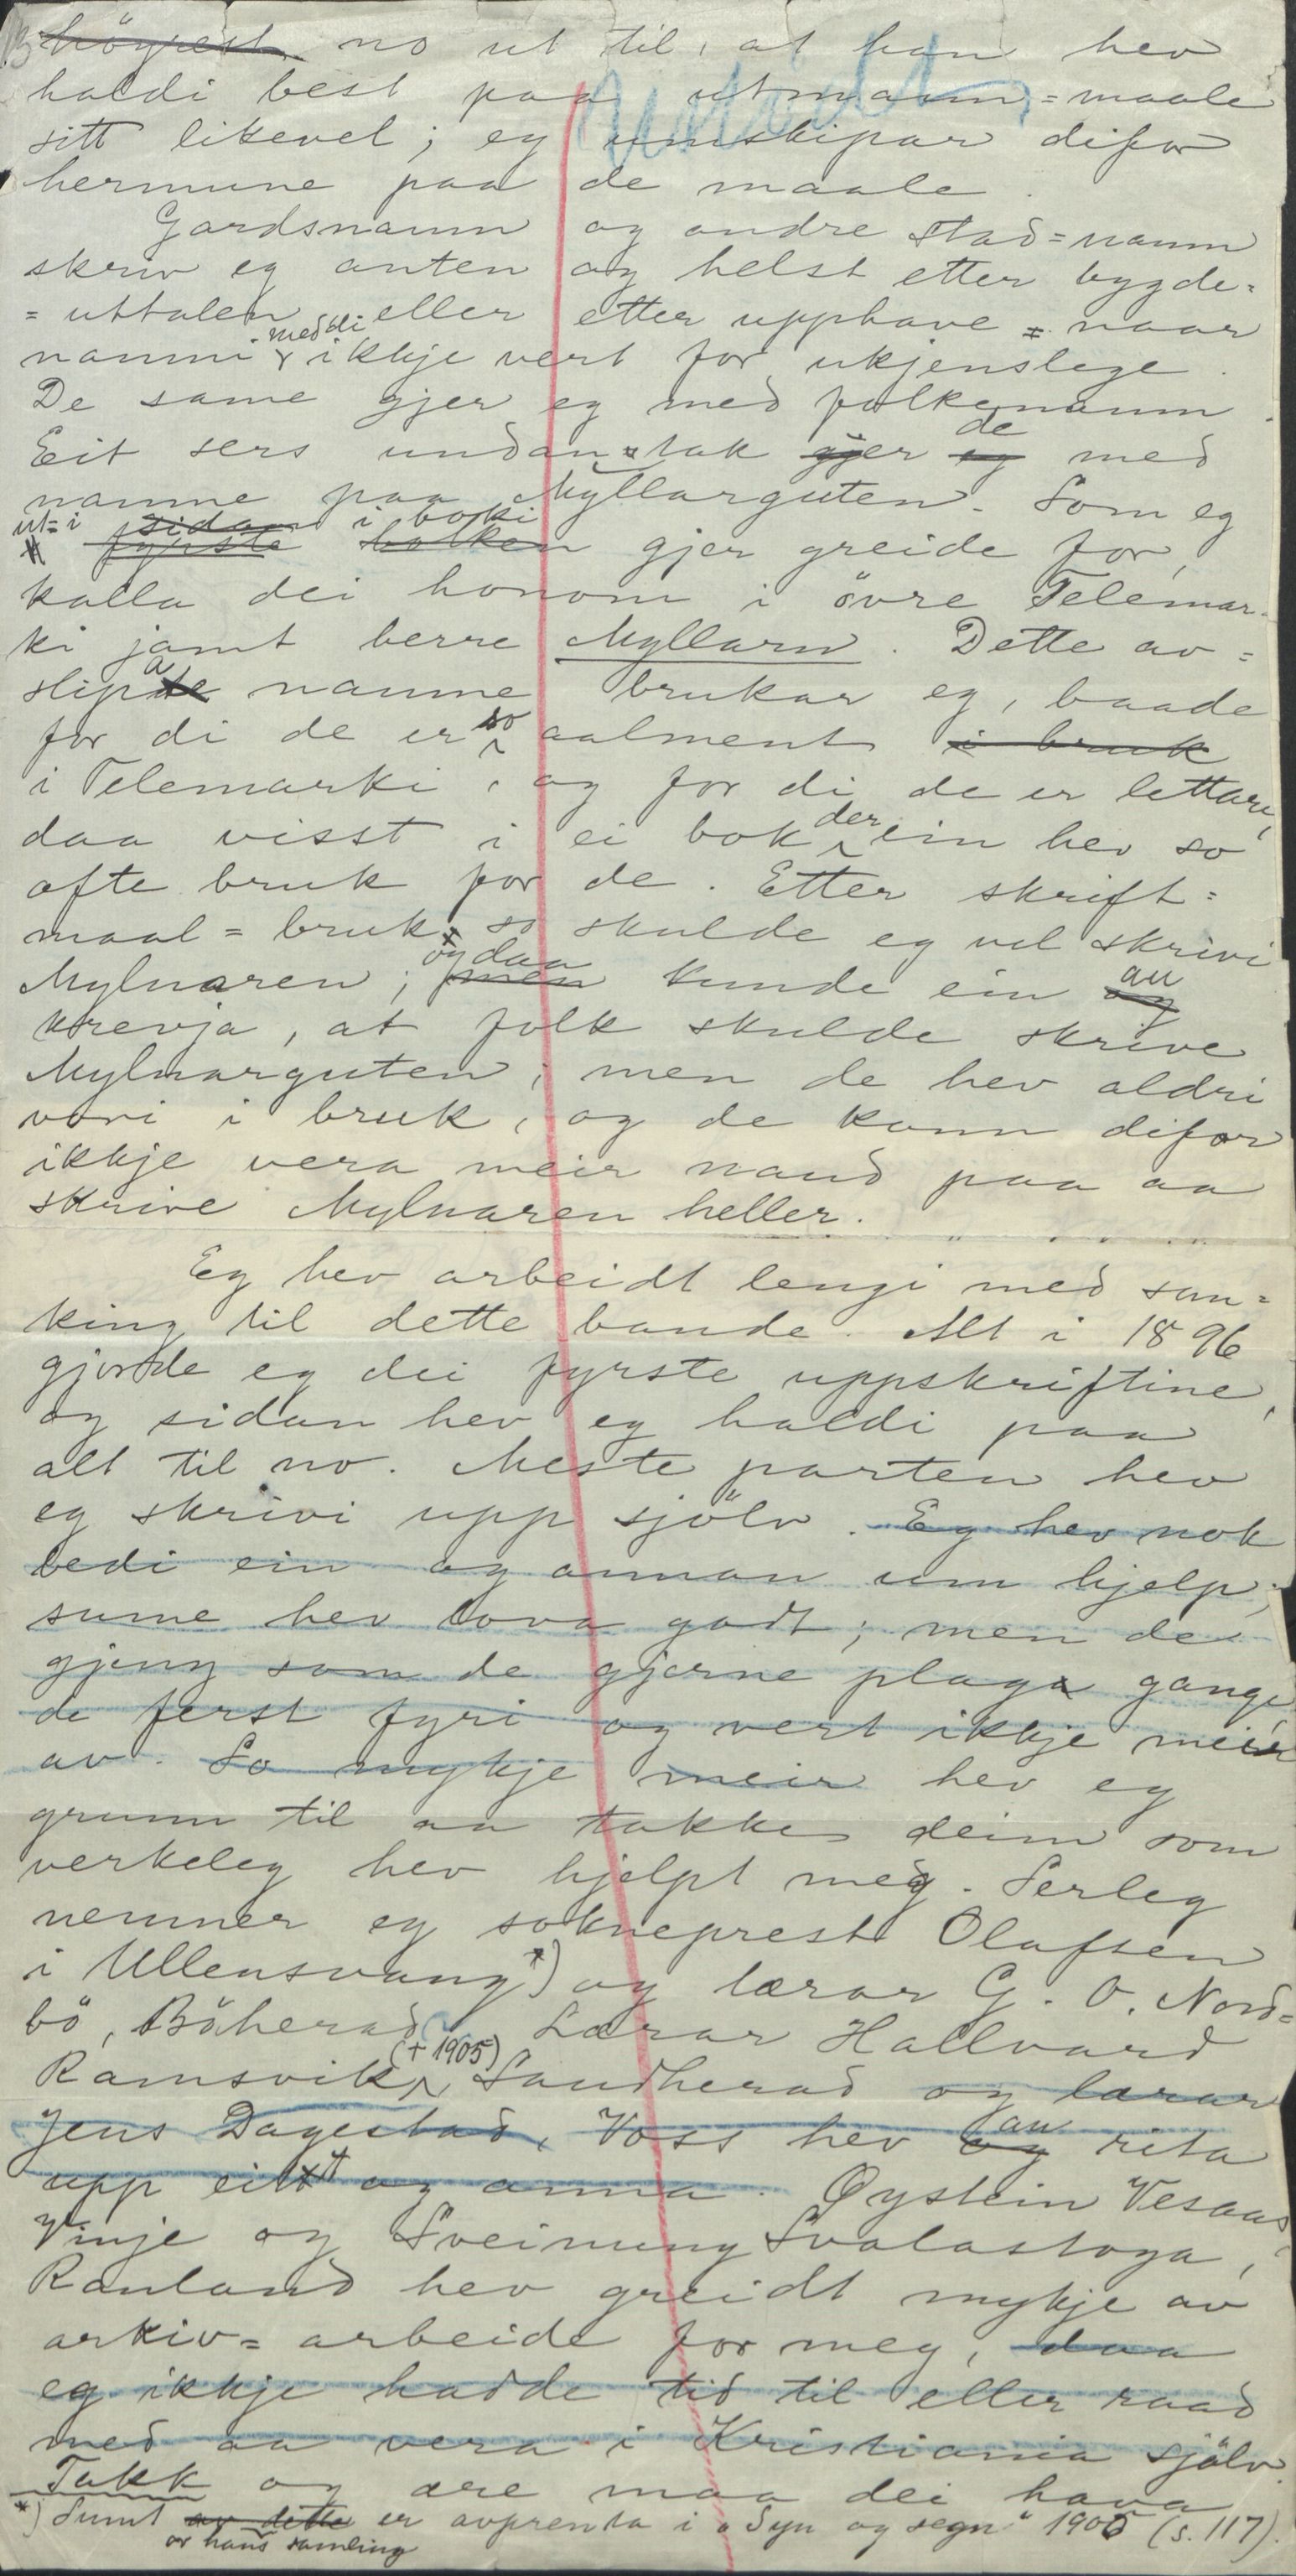 högrest no ut til, at han hev
haldi best paa utmann=maale
sitt likevel; eg umskipar difor
hermune paa de maale.
Gardsnamn og andre stad=namn
skriv eg anten og helst etter bygde=
=uttalen eller etter upphave naar
namni med di ikkje vert for ukjenslege.
De same gjer eg med folkenamn.
Eit sers undantak gjer eg de med
namne paa Myllarguten. Som eg
ut=i sidan i boki
fyrste bolken gjer greide for,
kalla dei honom i övre Telemar-
ki jamt berre Myllarn. Dette av=
slipa namne brukar eg, baade
for di de er so aalment i bruk
i Telemarki, og for di de er lettare,
daa visst i ei bok der ein hev so
ofte bruk for de. Etter skrift=
maal=bruk so skulde eg vel skrivi
Mylnaren; men og daa kunde ein og au
krevja, at folk skulde skrive
Mylnarguten; men de hev aldri
vori i bruk, og de kann difor
ikkje vera meir naud paa aa
skrive Mylnaren heller.
Eg hev arbeidt lengi med san=
king til dette bande. Alt i 1896
gjorde eg dei fyrste uppskriftine,
og sidan hev eg haldi paa
alt til no. Meste parten hev
eg skrivi upp sjölv. Eg hev nok
bedi ein og annan um hjelp;
sume hev lova godt; men de
gjeng som de gjerne plaga gange,
de ferst fyri og vert ikkje meir
av. So mykje meir hev eg
grunn til aa takke deim som
verkeleg hev hjelpt meg. Serleg
nemner eg sokneprest Olafsen
i Ullensvang*) og lærar G. O. Nord=
bö, Böherad. Lærar Hallvard
Ramsvik (+ 1905), Saudherad og lærar
Jens Dagestad, Voss hev og au rita
upp eitt og anna. Øystein Vesaas
Vinje og Sveinung Svalastoga,
Rauland hev greidt mykje av
arkiv=arbeide for meg, daa
eg ikkje hadde tid til eller raad
med aa vera i Kristiania sjölv.
Takk og ære maa dei hava
*) Sumt av dette er avprenta i „Syn og segn" 1906 (s. 117).
or hans samling